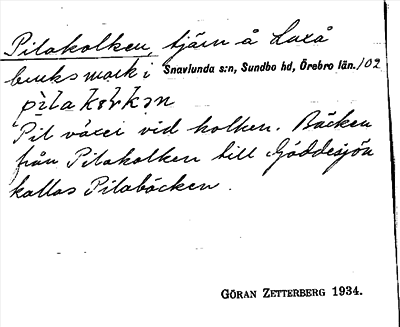 Pilakolken, tjärn å Laxå
bruksmark i Snavlunda s:n, Sundbo hd, Örebro län. /02
Pil växer vid kolken. Bäcken
från Pilakolken till Gäddesjön
kallas Pilabäcken.
GÖRAN ZETTERBERG 1934.